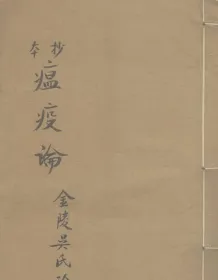 抄本
瘟疫論
金陵吳氏